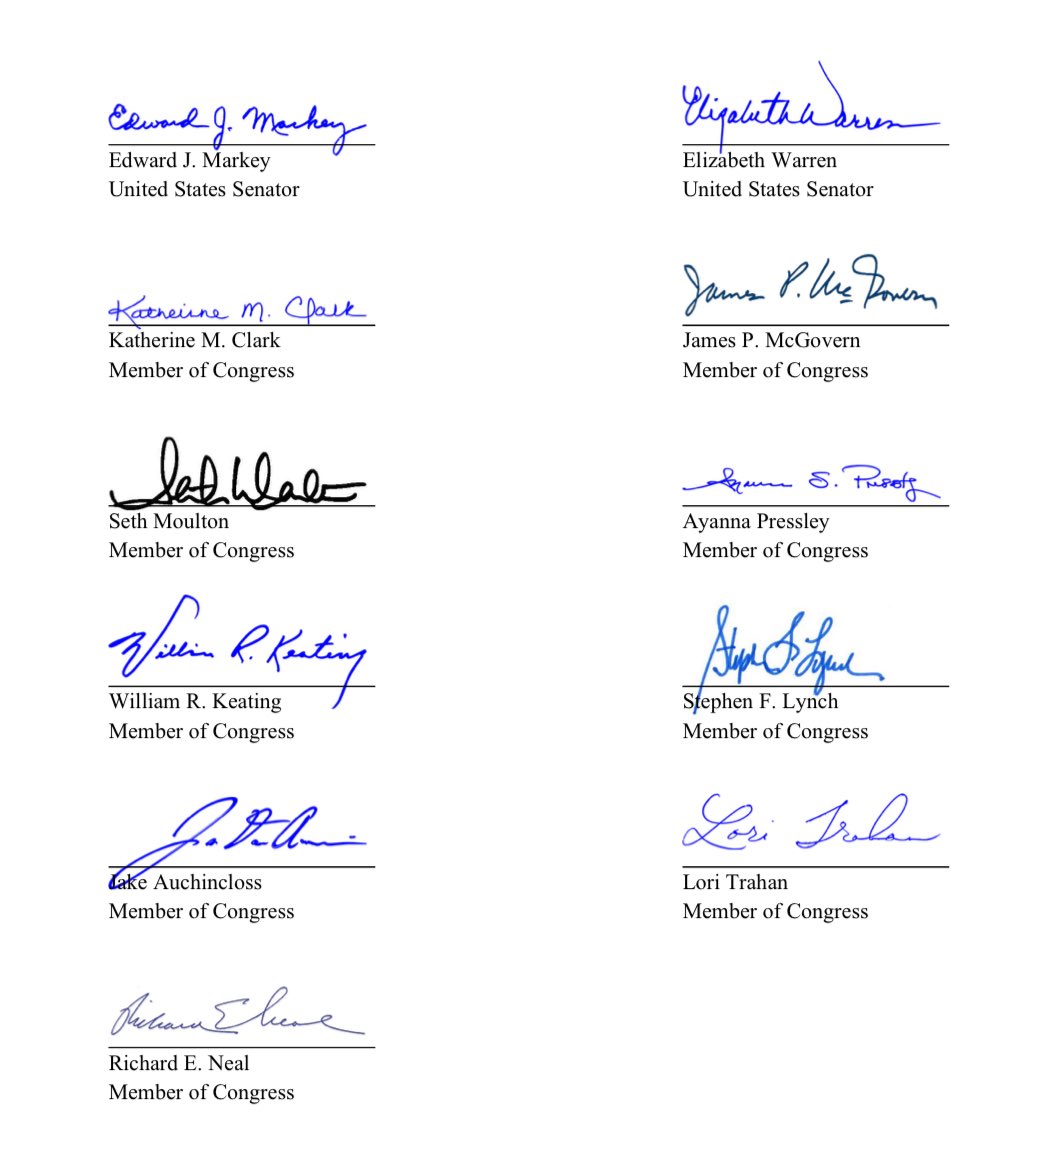 Edward J. Markey
Edward J. Markey
United States Senator
Elizabeth Warren
Elizabeth Warren
United States Senator
Katherine M. Clark
Katherine M. Clark
Member of Congress
James P. McGovern
James P. McGovern
Member of Congress
Seth Moulton
Member of Congress
S. Pressley
Ayanna Pressley
Member of Congress
William R. Keating
William R. Keating
Member of Congress
Stephen F. Lynch
Stephen F. Lynch
Member of Congress
Jake Auchincloss
Member of Congress
Lori Trahan
Lori Trahan
Member of Congress
Richard E. Neal
Richard E. Neal
Member of Congress